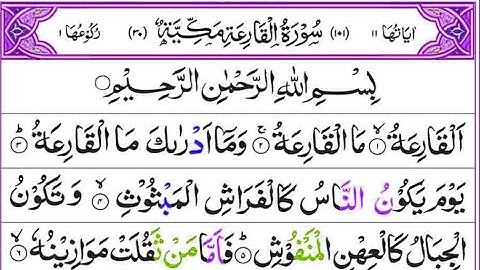 اٰیَاتُهَا ۱۱ (۱۰۱) سُوْرَةُ الْقَارِعَةِ مَكِّيَّةٌ (۳۰) رُكُوْعُهَا ۱
بِسْمِ اللهِ الرَّحْمٰنِ الرَّحِيْمِ
اَلْقَارِعَةُ ۙ۱ مَا الْقَارِعَةُ ۚ۲ وَمَاۤ اَدْرٰىكَ مَا الْقَارِعَةُ ؕ۳
يَوْمَ يَكُوْنُ النَّاسُ كَالْفَرَاشِ الْمَبْثُوْثِ ۙ۴ وَ تَكُوْنُ
الْجِبَالُ كَالْعِهْنِ الْمَنْفُوْشِ ؕ۵ فَاَمَّا مَنْ ثَقُلَتْ مَوَازِيْنُهٗ ۙ۶